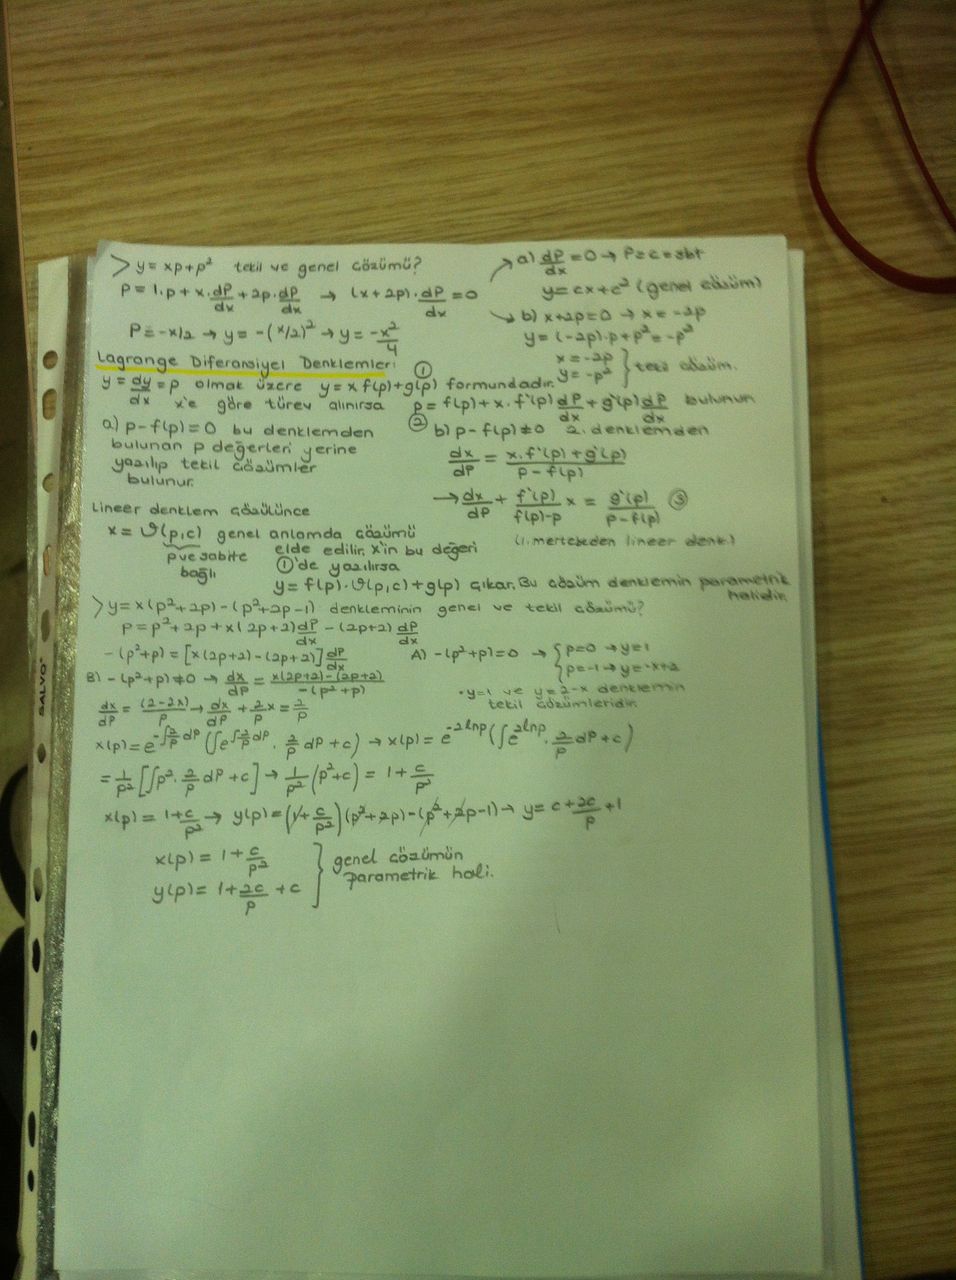 > y = xp+p² tekil ve genel çözümü?
p = 1.p + x.dp/dx + 2p.dp/dx → (x+2p).dp/dx = 0
a) dp/dx = 0 → p=c=sbt
y = cx+c² (genel çözüm)
b) x+2p=0 → x = -2p
y = (-2p).p+p² = -p²
x = -2p
y = -p² } tekil çözüm.
p = -x/2 → y = -(x/2)² → y = -x²/4
Lagrange Diferansiyel Denklemler: ①
y = dy/dx = p olmak üzere y = x f(p)+g(p) formundadır.
x'e göre türev alınırsa p = f(p) + x.f'(p) dp/dx + g'(p) dp/dx bulunur
②
a) p-f(p)=0 bu denklemden
bulunan p değerleri yerine
yazılıp tekil çözümler
bulunur.
b) p-f(p)≠0 2. denklemden
dx/dp = x.f'(p)+g'(p) / p-f(p)
→ dx/dp + f'(p)/f(p)-p x = g'(p)/p-f(p) ③
(1. mertebeden lineer denk.)
Lineer denklem çözülünce
x = ϑ(p,c) genel anlamda çözümü
p ve sabite
bağlı
elde edilir. x'in bu değeri
①'de yazılırsa
y = f(p).ϑ(p,c)+g(p) çıkar. Bu çözüm denklemin parametrik
halidir.
> y = x(p²+2p) - (p²+2p-1) denkleminin genel ve tekil çözümü?
p = p²+2p + x(2p+2) dp/dx - (2p+2) dp/dx
-(p²+p) = [x(2p+2) - (2p+2)] dp/dx
A) -(p²+p)=0 → { p=0 → y=1
p=-1 → y=-x+2
B) -(p²+p)≠0 → dx/dp = x(2p+2)-(2p+2) / -(p²+p)
• y=1 ve y=2-x denklemin
tekil çözümleridir.
dx/dp = (2-2x)/p → dx/dp + 2/p x = 2/p
x(p) = e^-∫2/p dp (∫e^∫2/p dp . 2/p dp + c) → x(p) = e^-2lnp (∫e^2lnp . 2/p dp + c)
= 1/p² [∫p². 2/p dp + c] → 1/p² (p²+c) = 1 + c/p²
x(p) = 1+c/p² → y(p) = (1+c/p²)(p²+2p) - (p²+2p-1) → y = c + 2c/p + 1
x(p) = 1 + c/p²
y(p) = 1 + 2c/p + c
} genel çözümün
parametrik hali.
SALVO